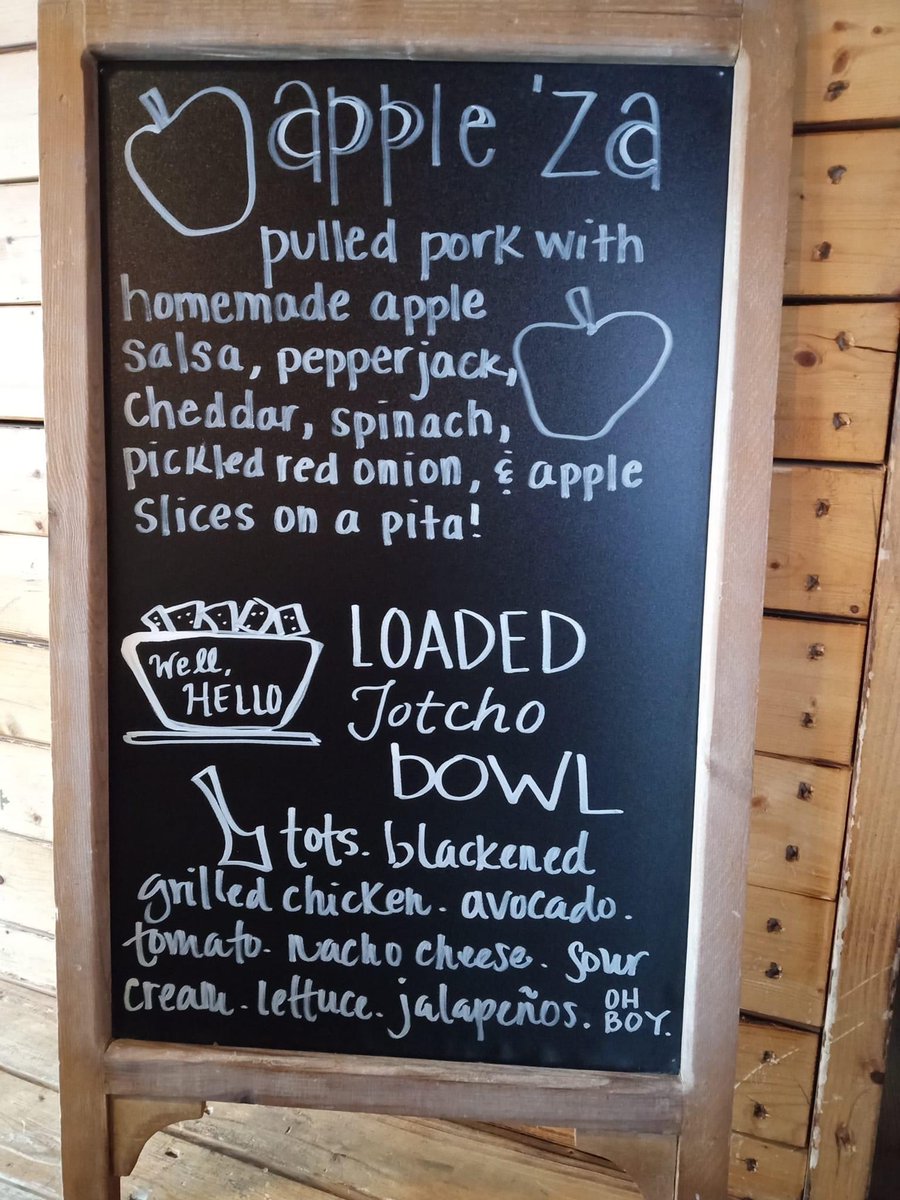 apple 'za
pulled pork with
homemade apple
salsa, pepperjack,
cheddar, spinach,
pickled red onion, & apple
slices on a pita!
Well,
HELLO
LOADED
Totcho
BOWL
tots. blackened
grilled chicken. avocado.
tomato. nacho cheese. sour
cream. lettuce. jalapeños. OH
BOY.